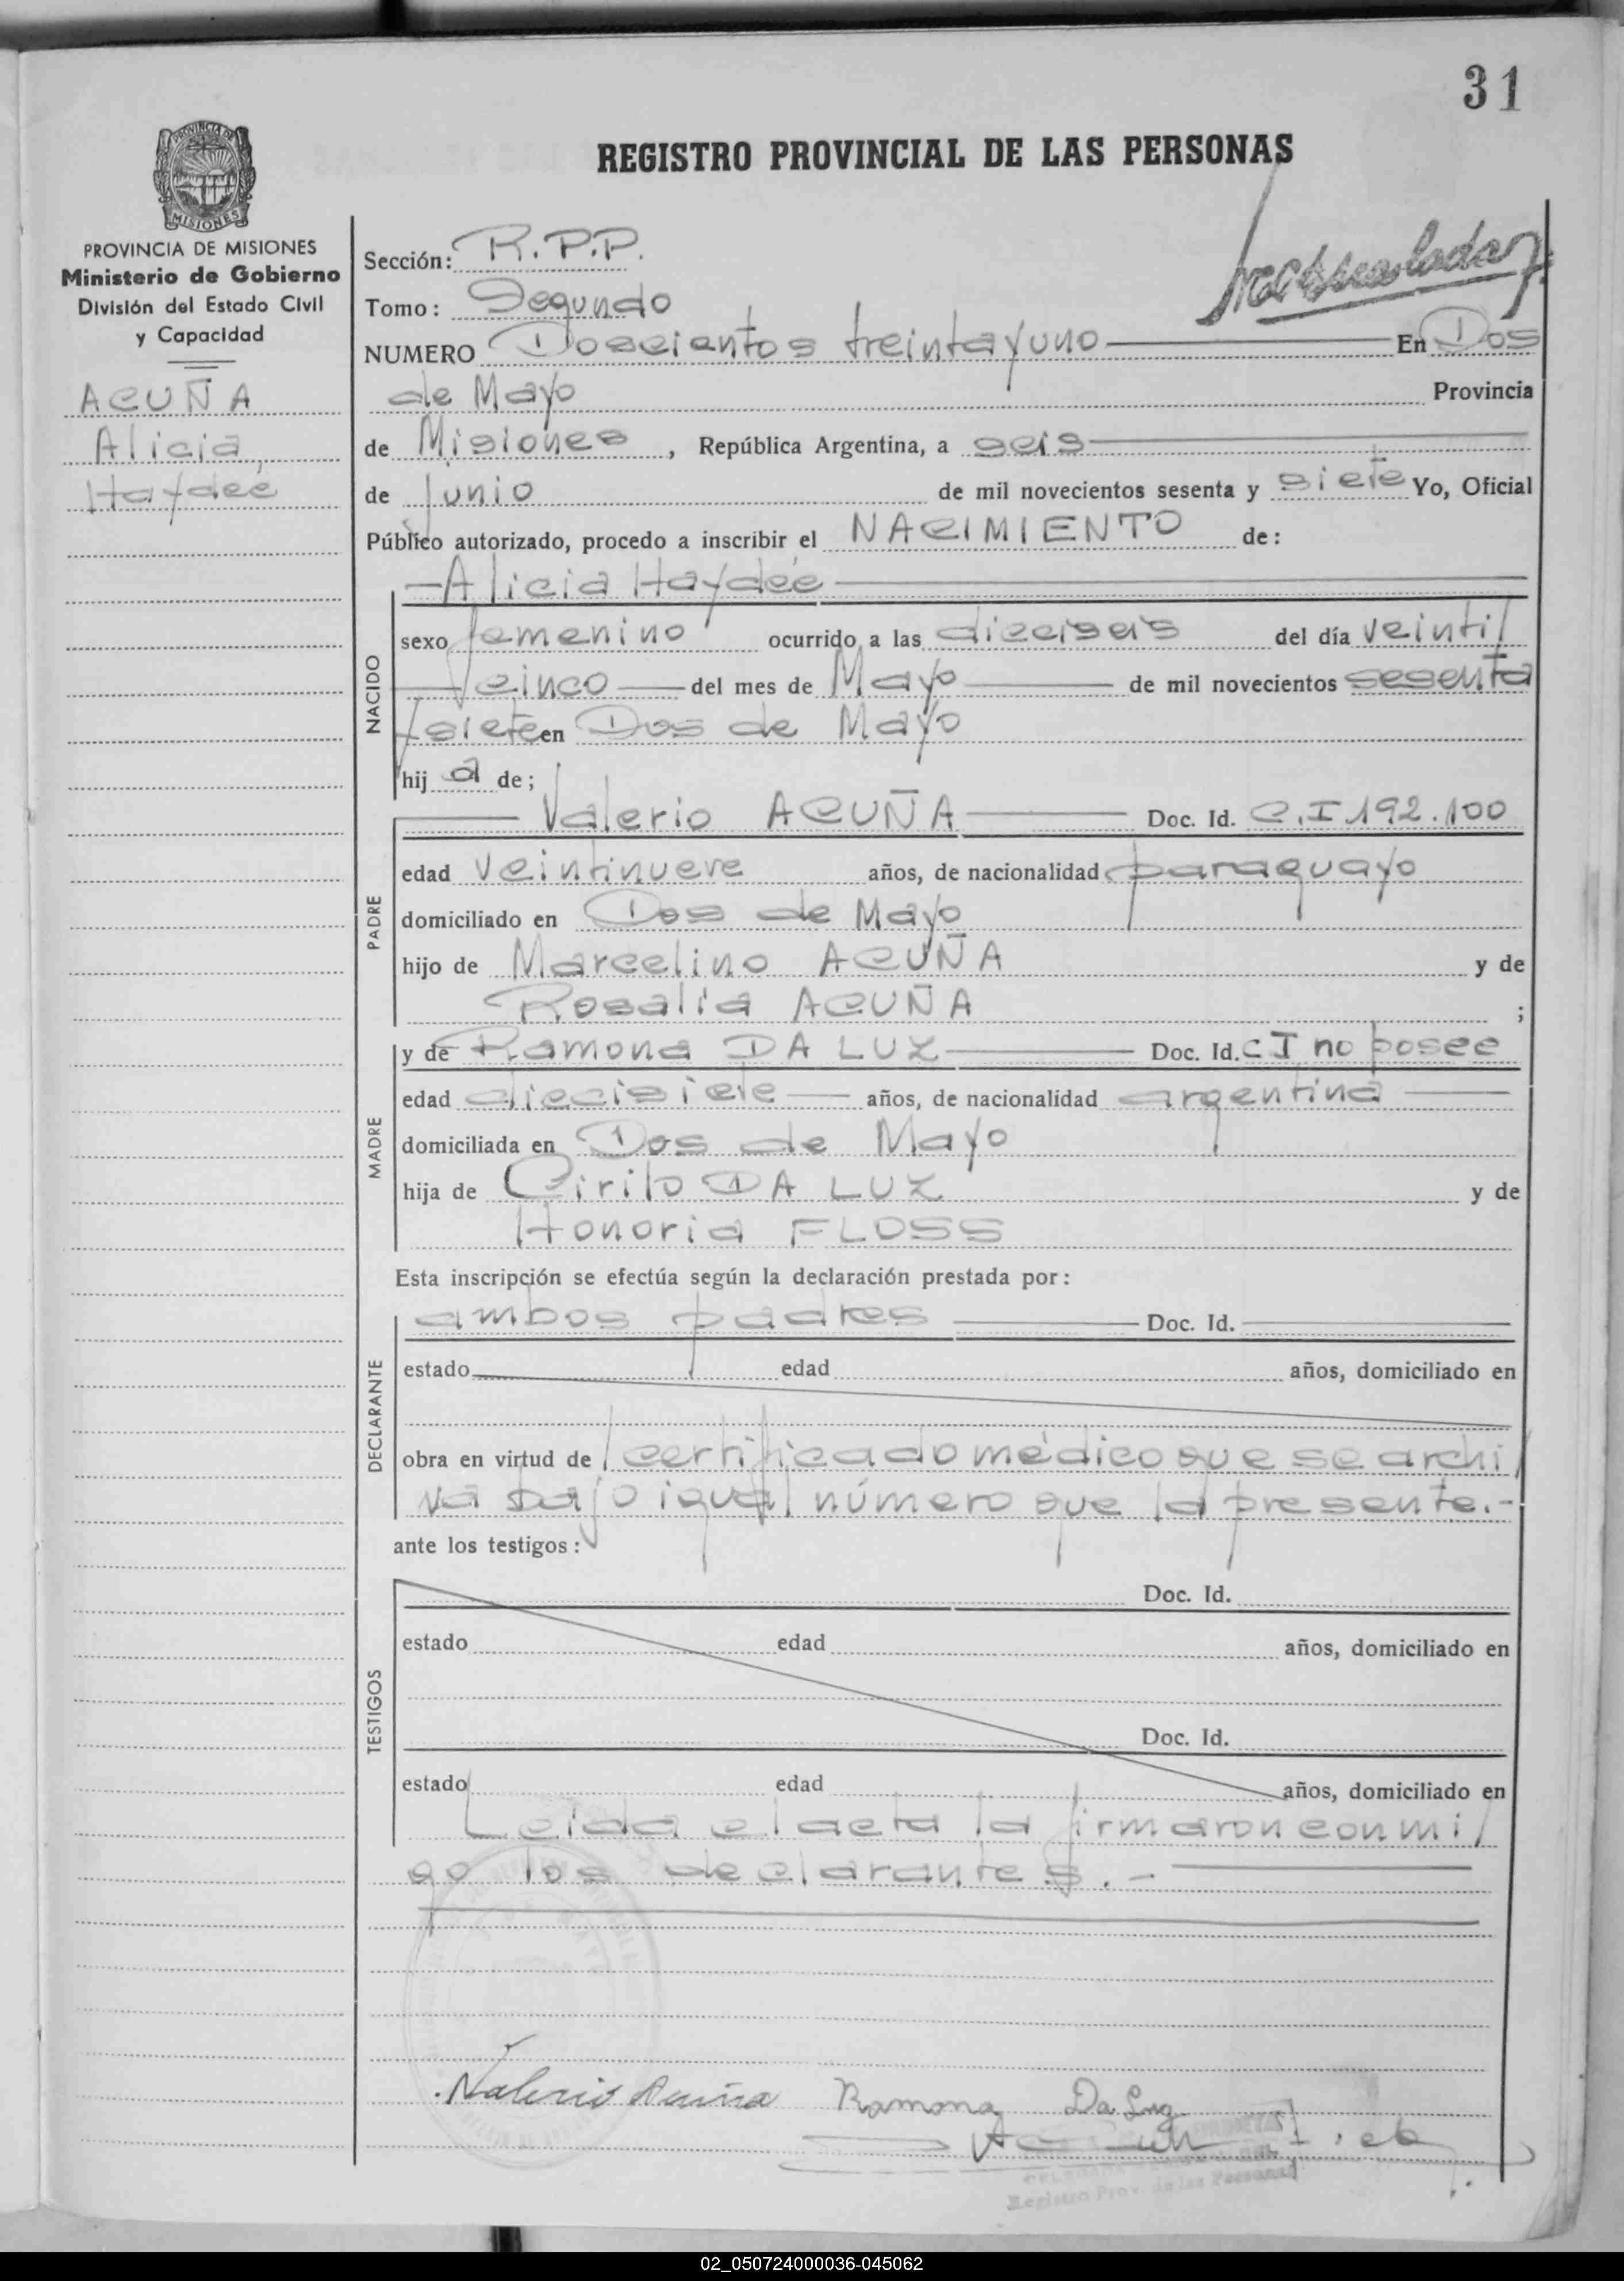 31
REGISTRO PROVINCIAL DE LAS PERSONAS
PROVINCIA DE
MISIONES
PROVINCIA DE MISIONES
Ministerio de Gobierno
División del Estado Civil
y Capacidad
ACUÑA
Alicia
Haydeé
Sección: R.P.P.
Tomo: Segundo
NUMERO Doscientos treintayuno En Dos
de Mayo Provincia
de Misiones, República Argentina, a seis
de junio de mil novecientos sesenta y siete Yo, Oficial
Público autorizado, procedo a inscribir el NACIMIENTO de:
Alicia Haydeé
NACIDO
sexo femenino ocurrido a las dieciseis del día veinti/
/cinco del mes de Mayo de mil novecientos sesenta
/siete en Dos de Mayo
hij a de;
PADRE
Valerio ACUÑA Doc. Id. C.I 192.100
edad veintinueve años, de nacionalidad paraguayo
domiciliado en Dos de Mayo
hijo de Marcelino ACUÑA y de
Rosalia ACUÑA ;
MADRE
y de Ramona DA LUZ Doc. Id. CI no posee
edad diecisiete años, de nacionalidad argentina
domiciliada en Dos de Mayo
hija de Cirilo DA LUZ y de
Honoria FLOSS
Esta inscripción se efectúa según la declaración prestada por:
DECLARANTE
ambos padres Doc. Id.
estado edad años, domiciliado en
obra en virtud de / certificado médico que se archi/
va bajo igual número que la presente.-
ante los testigos:
TESTIGOS
Doc. Id.
estado edad años, domiciliado en
Doc. Id.
estado edad años, domiciliado en
Leida el acta la firmaron conmi/
go los declarantes.-
Valerio Acuña Ramona Da Luz
Registro Prov. de las Personas
02_050724000036-045062